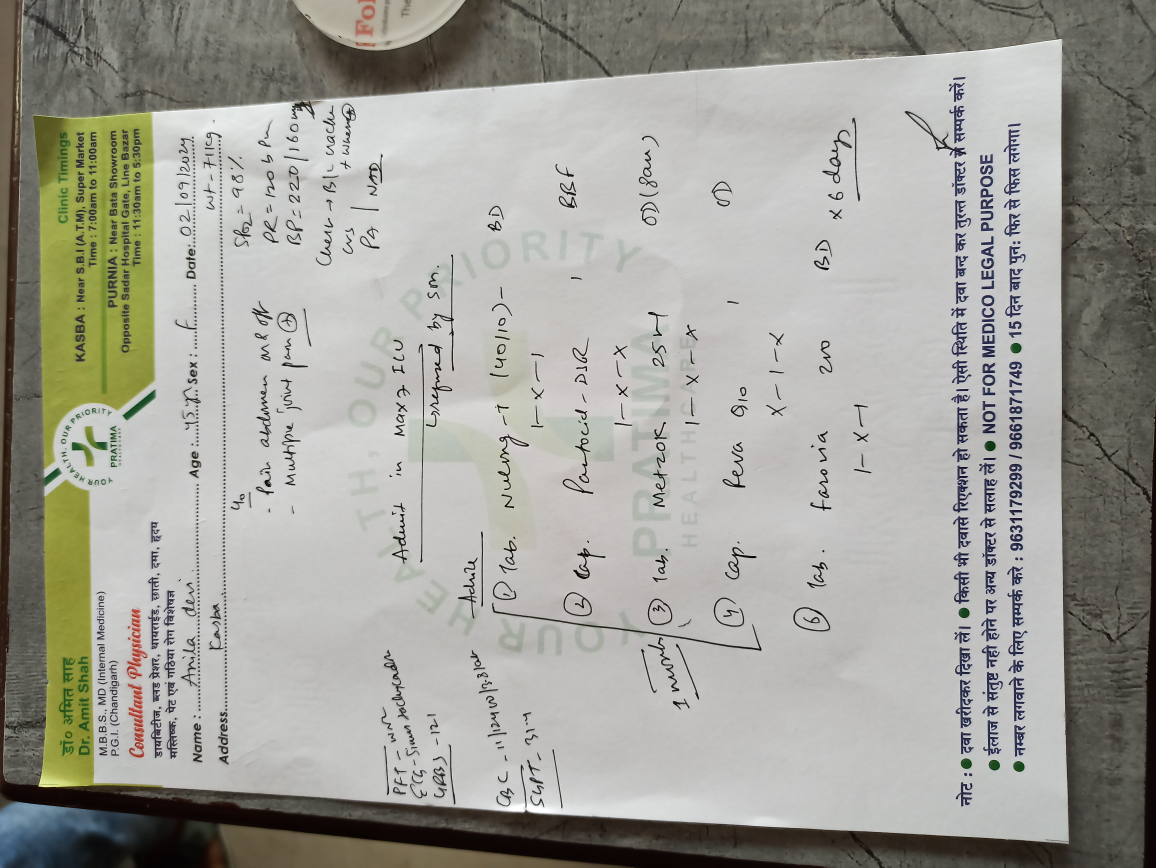 डां० अमित साह
Dr. Amit Shah
M.B.B.S., MD (Internal Medicine)
P.G.I. (Chandigarh)
Consultant Physician
डायबिटीज, ब्लड प्रेशर, थायराईड, छाती, दमा, हृदय
मस्तिष्क, पेट एवं गठिया रोग विशेषज्ञ
YOUR HEALTH, OUR PRIORITY
PRATIMA
HEALTHCARE
Clinic Timings
KASBA : Near S.B.I (A.T.M), Super Market
Time : 7:00am to 11:00am
PURNIA : Near Bata Showroom
Opposite Sadar Hospital Gate, Line Bazar
Time : 11:30am to 5:30pm
Name : Anila devi Age : 45 yr Sex : f Date: 02/09/2024
Address Kasba WT - 71 kg.
- Pain abdomen on & off
- Multiple joint pain +
SPO2 = 98%
PR = 120 bpm
BP = 220/160
Chest → B/L
CVS
PA | NAD
Admit in Max 7 ICU
refused by
PFT -
ECG - Sinus tachycardia
GRBS - 121
CBC - 11/12400/
SGPT - 31
Advice
1 Tab. (40/10) - BD
1 - x - 1
2 Cap. Pantocid - DSR 1 BBF
1 - x - x
3 Tab. Metzok 25 OD (8am)
1 - x - x
4 Cap. Reva 1 OD
x - 1 - x
5 Tab. Farovia 200 BD x 6 days
1 - x - 1
YOUR HEALTH, OUR PRIORITY
PRATIMA
HEALTHCARE
नोट : ● दवा खरीदकर दिखा लें। ● किसी भी दवासे रिएक्शन हो सकता है। ऐसी स्थिति में दवा बन्द कर तुरन्त डॉक्टर से सम्पर्क करें।
● ईलाज से संतुष्ट नही होने पर अन्य डॉक्टर से सलाह लें। ● NOT FOR MEDICO LEGAL PURPOSE
● नम्बर लगवाने के लिए सम्पर्क करे : 9631179299 / 9661871749 ● 15 दिन बाद पुनः फिर से फिस लगेगा।